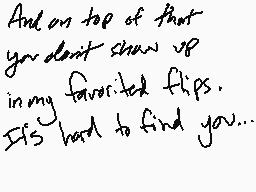 And on top of that
you don't show up
in my favorited flips.
It's hard to find you...